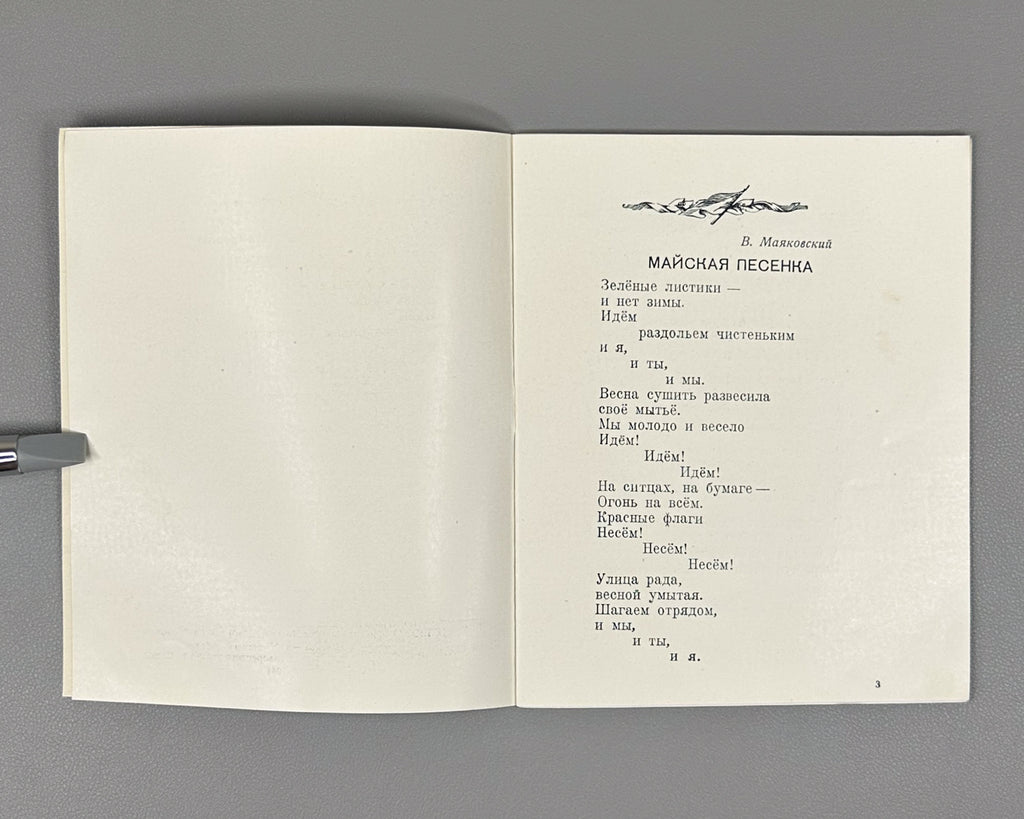 В. Маяковский
МАЙСКАЯ ПЕСЕНКА
Зелёные листики —
и нет зимы.
Идём
раздольем чистеньким
и я,
и ты,
и мы.
Весна сушить развесила
своё мытьё.
Мы молодо и весело
Идём!
Идём!
Идём!
На ситцах, на бумаге —
Огонь на всём.
Красные флаги
Несём!
Несём!
Несём!
Улица рада,
весной умытая.
Шагаем отрядом,
и мы,
и ты,
и я.
3